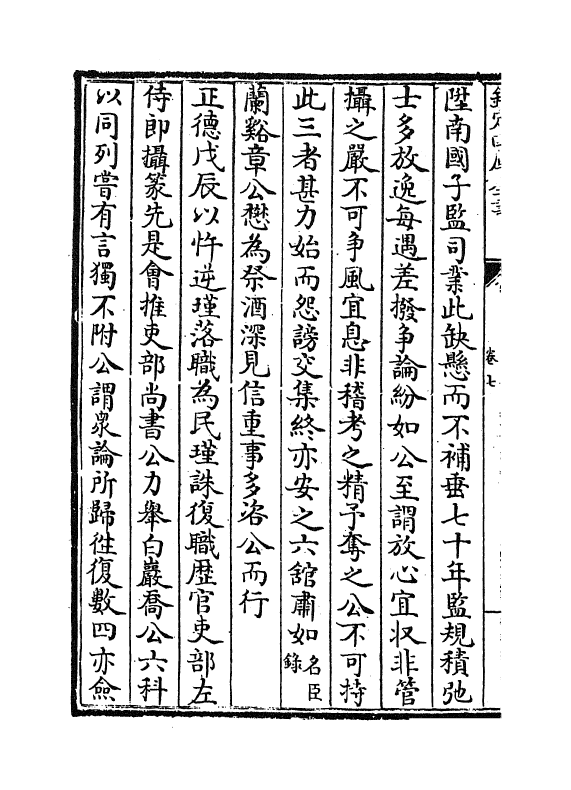 欽定四庫全書
卷七
陞南國子監司業此缺懸而不補垂七十年監規積弛
士多放逸每遇差撥争論紛如公至謂放心宜収非管
攝之嚴不可争風宜息非稽考之精予奪之公不可持
此三者甚力始而怨謗交集終亦安之六舘肅如名臣錄
蘭谿章公懋為祭酒深見信重事多咨公而行
正德戊辰以忤逆瑾落職為民瑾誅復職歴官吏部左
侍郎攝篆先是㑹推吏部尚書公力舉白巖喬公六科
以同列嘗有言獨不附公謂衆論所歸徃復數四亦僉